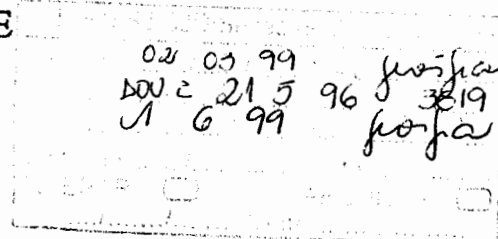 E
02 03 99
DOU = 21 5 96 3819
1 6 99